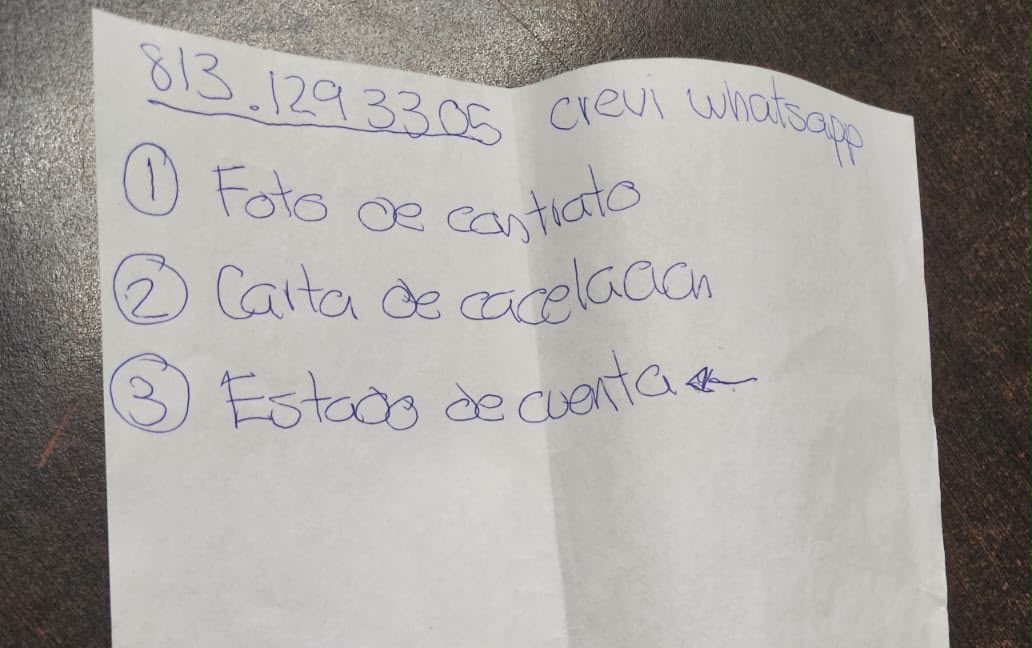 813.1293305 crevi whatsapp
① Foto de contrato
② Carta de cacelacion
③ Estado de cuenta ←